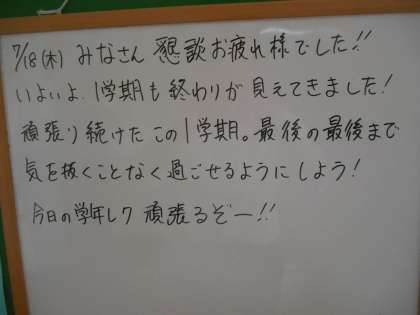 7/18(木) みなさん 懇談お疲れ様でした!!
いよいよ、1学期も終わりが見えてきました!
頑張り続けたこの1学期。最後の最後まで
気を抜くことなく過ごせるようにしよう!
今日の学年レク 頑張るぞー!!